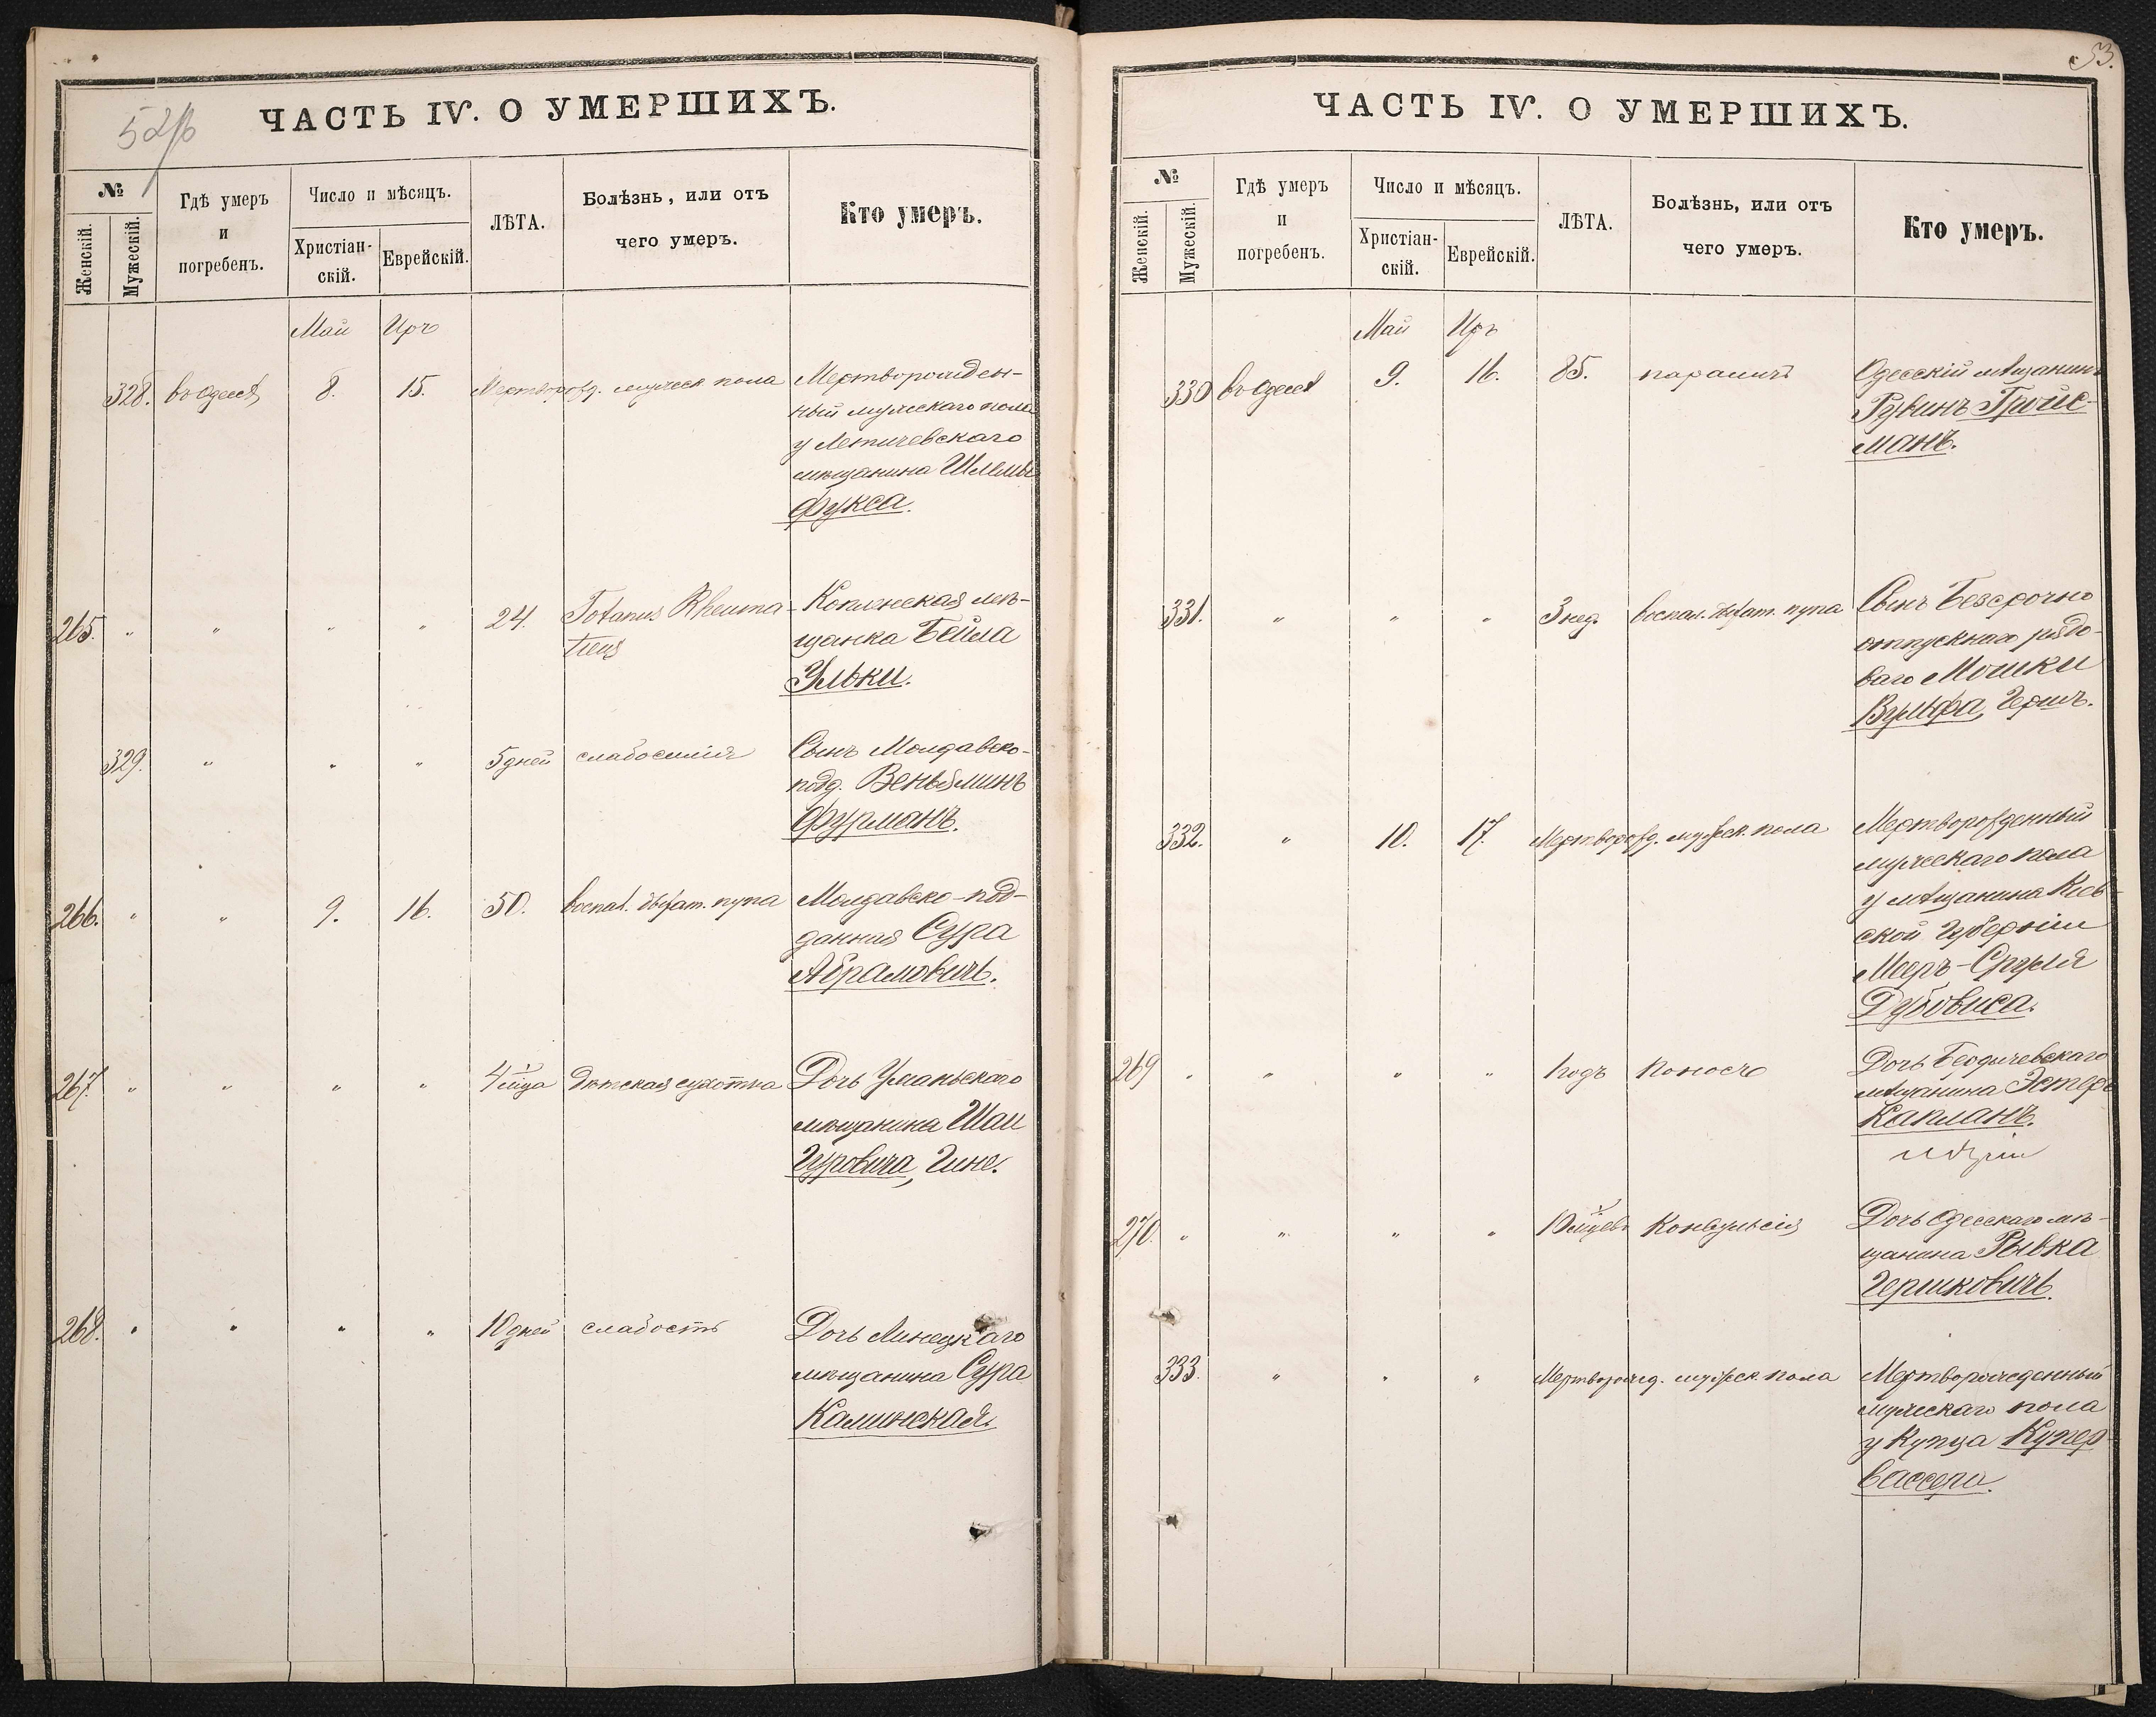 52 об
ЧАСТЬ IV. О УМЕРШИХЪ.
№
Женскій.
Мужескій.
Гдѣ умеръ
и
погребенъ.
Число и мѣсяцъ.
Христіан-
скій.
Еврейскій.
ЛѢТА.
Болѣзнь, или отъ
чего умеръ.
Кто умеръ.
Май Иръ
328. въ Одессѣ 8. 15. Мертворожд. мужеск пола Мертворожден-
ный мужескаго пола
у Летичевскаго
мѣщанина Шлемы
Фукса.
265. " " " " 24. Totanus Rheuma- мѣ-
ticus щанка Бейла
Ульки.
329. " " " 5 дней слабосилія Сынъ Молдавско-
подд. Веньяминъ
Фурманъ.
266. " " 9. 16. 50. воспал. пупа Молдавско-под-
данная Сура
Абрамовичъ.
267. " " " " 4 мца Дѣтская сухотка Дочь Уманьскаго
мѣщанина Шаи
Гуровича, Гине.
268. " " " " 10 дней слабость Дочь Линецкаго
мѣщанина Сура
Калинская.
53.
ЧАСТЬ IV. О УМЕРШИХЪ.
№
Женскій.
Мужескій.
Гдѣ умеръ
и
погребенъ.
Число и мѣсяцъ.
Христіан-
скій.
Еврейскій.
ЛѢТА.
Болѣзнь, или отъ
чего умеръ.
Кто умеръ.
Май Иръ
330 въ Одессѣ 9. 16. 85. параличъ Одесскій мѣщанинъ
Рувинъ Гройс-
манъ.
331. " " " 3 нед. воспал. пупа Сынъ Безсрочно
отпускного рядо-
ваго Мошки
Вульфа, Гершъ.
332. " 10. 17. Мертворожд. мужеск. пола Мертворожденный
мужескаго пола
у мѣщанина Кіев-
ской Губерніи
Мееръ-Сруля
Дубовиса.
269 " " " " 1 годъ Поносъ Дочь Бердичевскаго
мѣщанина Эстеръ
Капланъ.
270. " " " " 10 мцевъ Конвульсія Дочь Одесскаго мѣ-
щанина Рывка
Гершковичъ.
333. " " " Мертворожд. мужеск. пола Мертворожденный
мужескаго пола
у Купца Купер-
вассера.